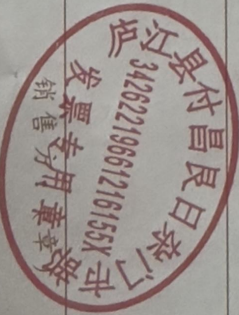 庐江县付昌良日杂门市部
34262219661216155X
发票专用章
销售方 章